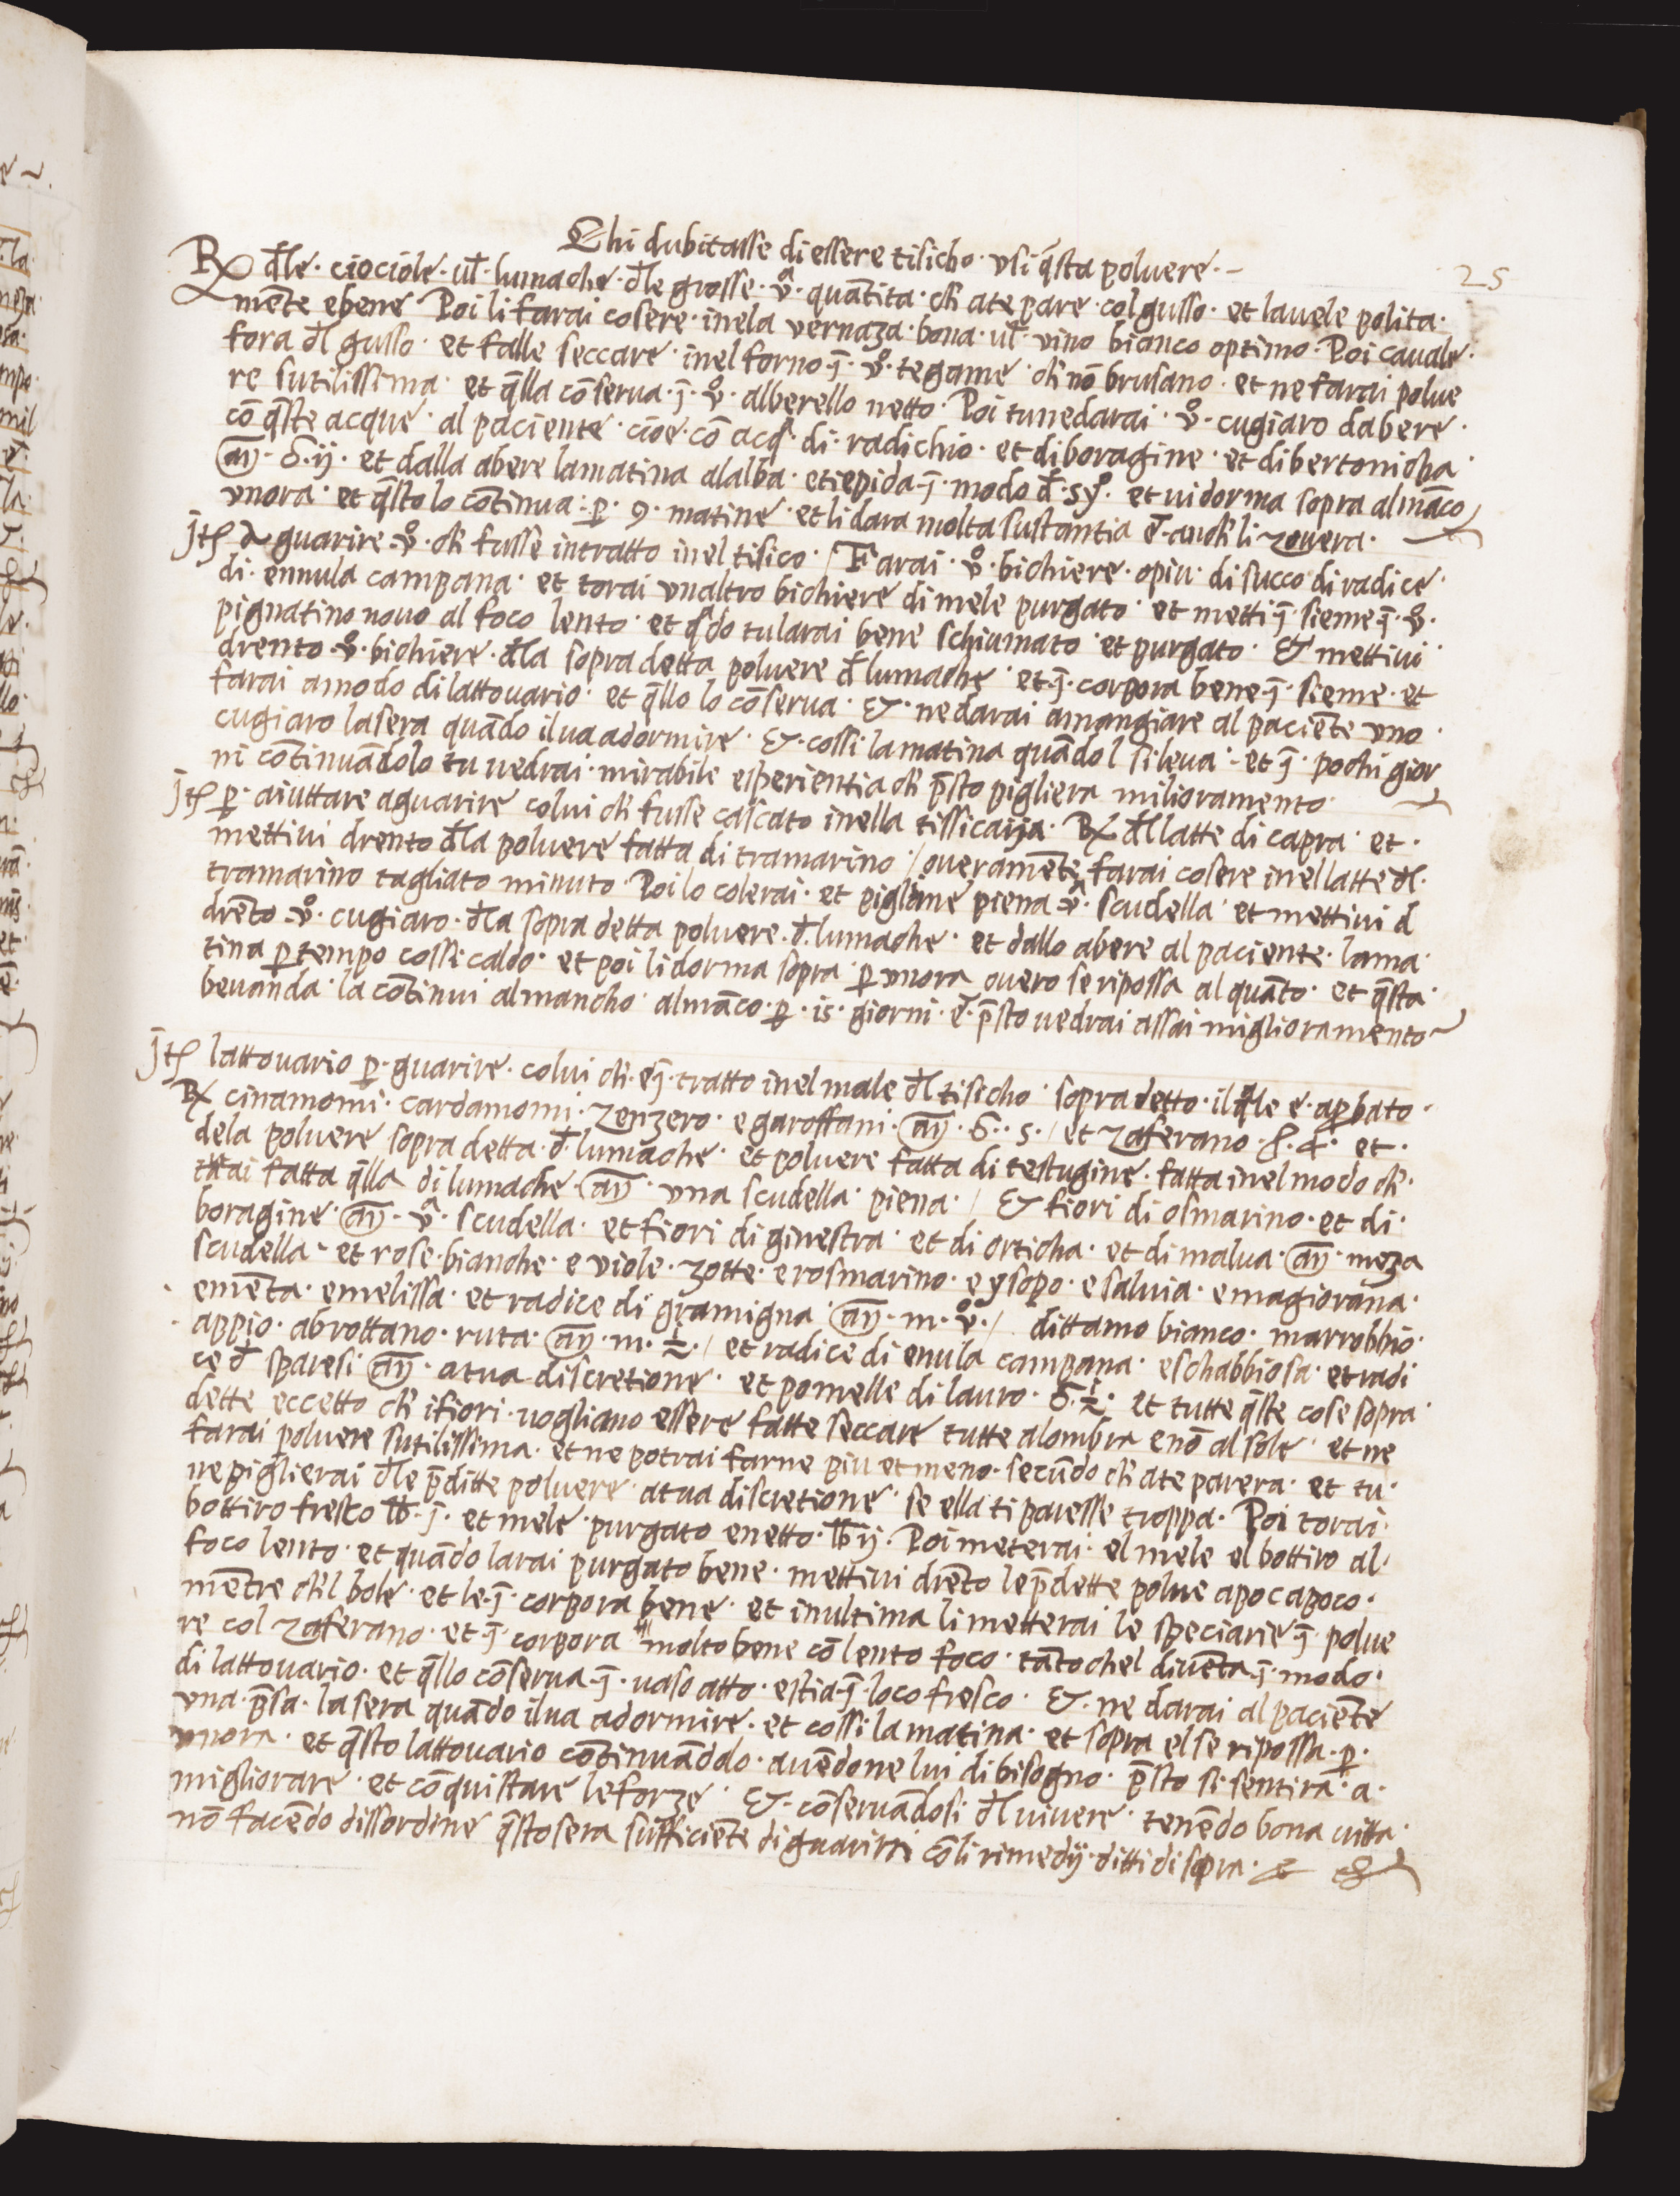 Chi dubitasse di essere tisicho · usi q̄sta polvere ·–
25
℞ d̄le · ciociole · ul̄ · lumache · d̄le grosse · vᵃ · quātita · ch̄ ate pare · col gusso · et lavele polita ·
mēte e bene Poi li farai cosere · inela vernaza · bona · ul̄ · vino bianco optimo · Poi cavale ·
fora d̄l gusso · et falle seccare · inel forno · ī · vᵒ · tegame · ch̄ nō brusano · et ne farai polve
re sutilissima · et q̄lla cōserva · ī · vᵒ · alberello netto · Poi tu ne darai · vᵒ · cugiaro da bere ·
cō q̄ste acque · al paciente · cioe · cō acq̄ · di · radichio · et di boragine · et di bertonicha ·
añ · ℥ · ij · et dalla abere la matina alalba · et tiepida · ī · modo d̄ · syᵒ · et vi dorma sopra al māco
vnora · et q̄sto lo cōtinua · p̄ · 9 · matine · et li dara molta sustantia e · anch̄ li zovera ·
jtē a guarire · vᵒ · ch̄ fusse intratto inel tisico / Farai · vᵒ · bichiere · o piu · di succo di radice ·
di · ennula campana · et torai vnaltro bichiere di mele purgato · et metti ī sieme · ī · vᵒ ·
pignatino novo al foco lento · et qᵃdo tu larai bene schiumato · et purgato · & mettivi
drento · vᵒ · bichiere · d̄la sopra detta polvere d̄ lumache · et · ī · corpora bene · ī · sieme · et
farai a modo di lattovario · et q̄llo lo cōserva · & · ne darai a mangiare al paciēte uno ·
cugiaro la sera quādo il va a dormire · & · cossi la matina quādo l si leva · et ī · pochi gior
ni cōtinuādolo tu vedrai · mirabile esperientia ch̄ p̄sto pigliera milioramento ·
jtē p̄ · aiuttare a guarire colui ch̄ fusse cascato inella tissicaija · ℞ d̄l latte di capra · et ·
mettivi drento d̄la polvere fatta di tramarino / overamēte farai cosere inel latte d̄l ·
tramarino tagliato minuto · Poi lo colerai · et pigliane piena · vᵃ · scudella · et mettivi d
drēto · vᵒ · cugiaro · d̄la sopra detta polvere · d̄ · lumache · et dallo abere al paciente · la ma ·
tina p̄ tempo cossi caldo · et poi li dorma sopra · p̄ vnora overo se ripossa al quāto · et q̄sta ·
bevanda · la cōtinui al mancho · al māco · p̄ · 15 · giorni · e · p̄sto vedrai assai miglioramento
jtē lattovario p̄ · guarire · colui ch̄ · eī · tratto inel male d̄l tisicho · sopra detto · il q̄le e · ap̄bato ·
℞ cinamomi · cardamomi · zenzero · e garoffani · añ · ℥ · s · / et zaferano · ℈ · 4 · et ·
dela polvere sopra detta · d̄ · lumache · et polvere fatta di testugine · fatta inel modo ch̄ ·
hai fatta q̄lla di lumache · añ · una scudella · piena · / & fiori di osmarino · et di ·
boragine · añ · vᵃ · scudella · et fiori di ginestra · et di orticha · et di malva · añ · meza
scudella · et rose · bianche · e viole · zotte · e rosmarino · e ysopo · e salvia · e magiorana ·
e mēta · e melissa · et radice di gramigna · añ · m · vᵒ · / dittamo bianco · marrobbio ·
appio · abrottano · ruta · añ · m · ½ · / et radice di enula campana · e schabbiosa · et radi
ce d̄ sparesi añ · a tua discretione · et pomelle di lauro · ℥ · ½ · et tutte q̄ste cose sopra ·
dette eccetto ch̄ i fiori · vogliano essere fatte seccare tutte a lombra e nō al sole · et ne
farai polvere sutilissima · et ne potrai farne piu et meno · secūdo ch̄ ate parera · et tu ·
ne piglierai d̄le p̄ditte polvere · a tua discretione · se ella ti paresse troppa · Poi torai ·
bottiro fresco lb̄ · j · et mele · purgato e netto · lb̄ ij · Poi meterai · el mele el bottiro al ·
foco lento · et quādo larai purgato bene · mettivi drēto le p̄dette polve a poc a poco ·
mētre ch̄l bole · et le · ī · corpora bene · et in ultima li metterai le speciarie ī polve
re col zaferano · et ī corpora molto bene cō lento foco · tāto chel divēta · ī · modo ·
di lattovario · et q̄llo cōserva · ī · vaso atto · e stia · ī · loco fresco · & · ne darai al paciēte
una · p̄sa · la sera quādo il va a dormire · et cossi la matina · et sopra el se ripossa · p̄ ·
vnora · et q̄sto lattovario cōtinuādolo · avēdone lui di bisogno · p̄sto si sentira · a ·
migliorare · et cōquistare le forze · & · cōservādosi d̄l vivere · tenēdo bona vitta ·
nō facēdo dissordine q̄sto sera sufficiēte di guarirti cō li rimedij · ditti di sopra ·